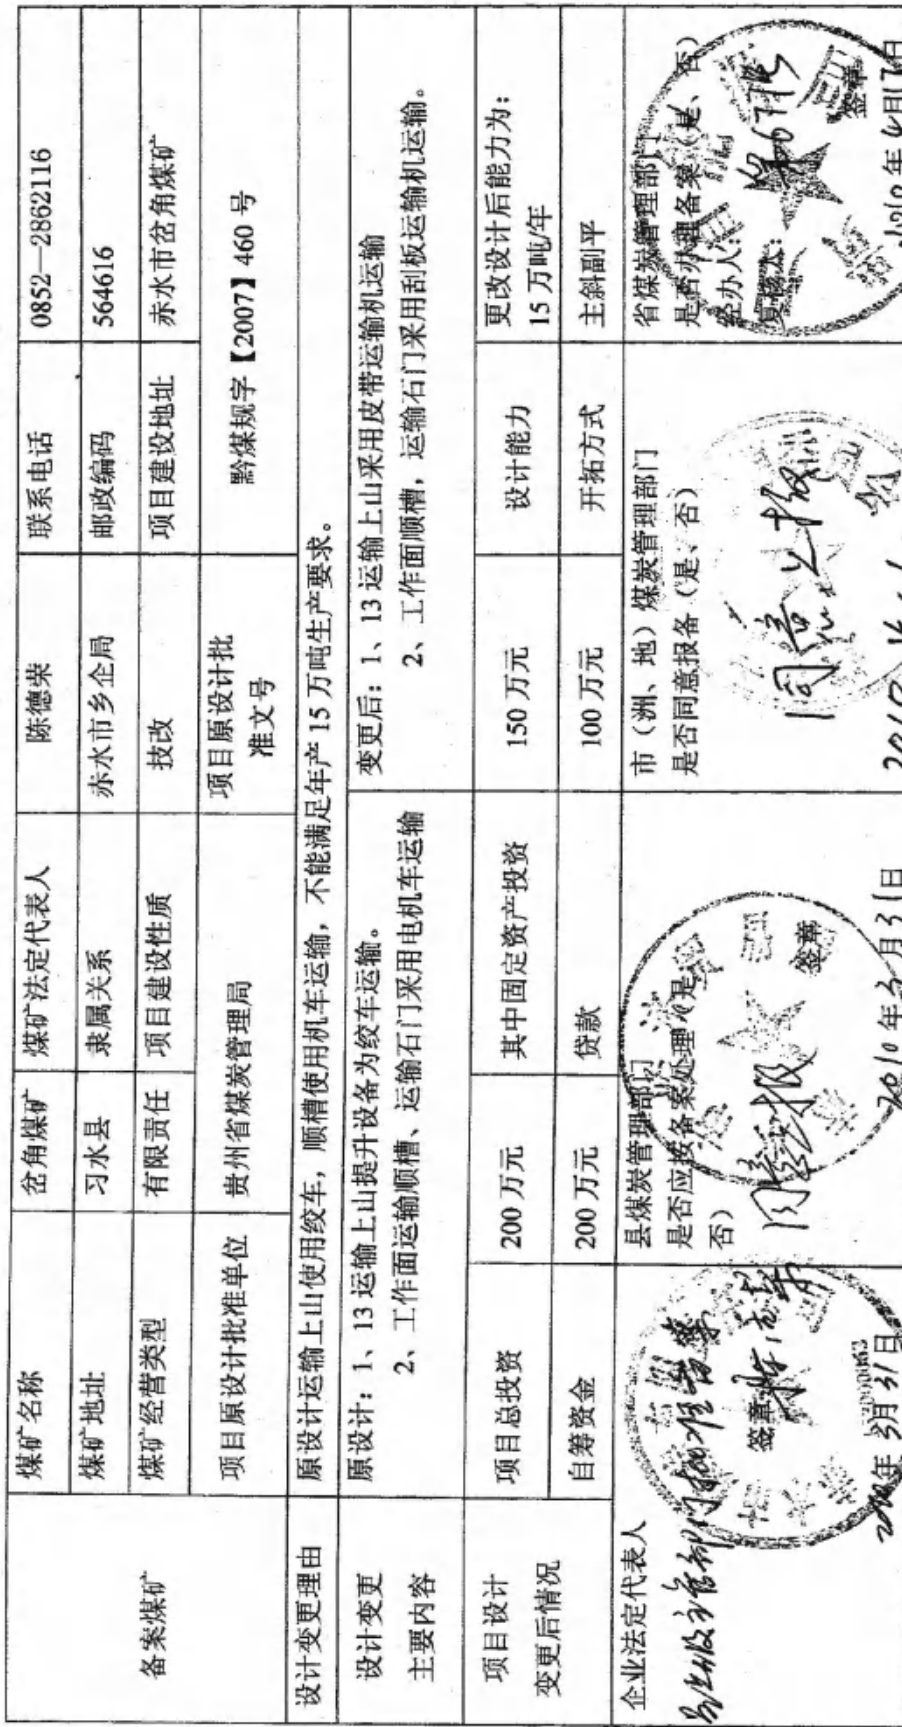 备案煤矿
煤矿名称 岔角煤矿 煤矿法定代表人 陈德荣 联系电话 0852—2862116
煤矿地址 习水县 隶属关系 赤水市乡企局 邮政编码 564616
煤矿经营类型 有限责任 项目建设性质 技改 项目建设地址 赤水市岔角煤矿
项目原设计批准单位 贵州省煤炭管理局 项目原设计批 黔煤规字【2007】460 号
准文号
设计变更理由 原设计运输上山使用绞车，顺槽使用机车运输，不能满足年产 15 万吨生产要求。
设计变更
主要内容
原设计：1、13 运输上山提升设备为绞车运输。
2、工作面运输顺槽、运输石门采用电机车运输
变更后：1、13 运输上山采用皮带运输机运输
2、工作面顺槽，运输石门采用刮板运输机运输。
项目设计
变更后情况
项目总投资 200 万元 其中固定资产投资 150 万元 设计能力 更改设计后能力为：
15 万吨/年
自筹资金 200 万元 贷款 100 万元 开拓方式 主斜副平
企业法定代表人
签章
3月31日
县煤炭管理部门
是否应按备案处理（是、
否）
同意上报
签章
2010年3月31日
市（洲、地）煤炭管理部门
是否同意报备（是、否）
同意上报
2010
省煤炭管理部门
是否办理备案（是、否）
经办人：
复核人：
签章
2010年4月17日